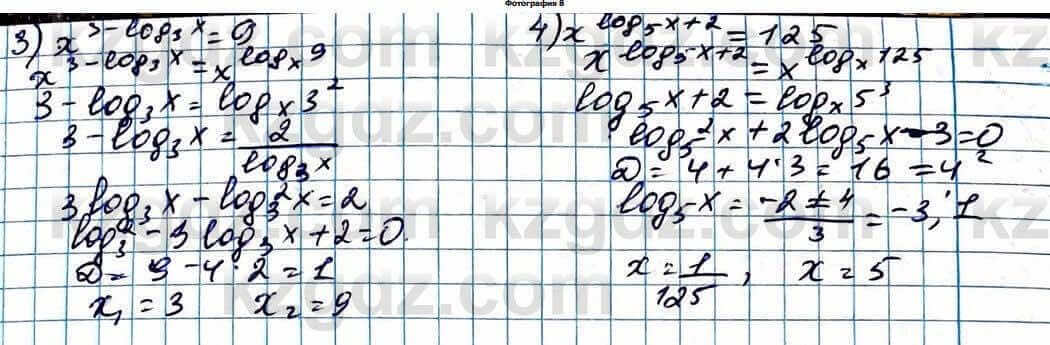 Фотография 8
3) x^{3-log₃x} = 9
x^{3-log₃x} = x^{logₓ9}
3 - log₃x = logₓ3²
3 - log₃x = 2/log₃x
3log₃x - log₃²x = 2
log₃² - 3log₃x + 2 = 0.
D = 9 - 4·2 = 1
x₁ = 3 x₂ = 9
4) x^{log₅x+2} = 125
x^{log₅x+2} = x^{logₓ125}
log₅x + 2 = logₓ5³
log₅²x + 2log₅x - 3 = 0
D = 4 + 4·3 = 16 = 4²
log₅x = (-2 ± 4)/3 = -3; 1
x = 1/125, x = 5
kzgdz.com